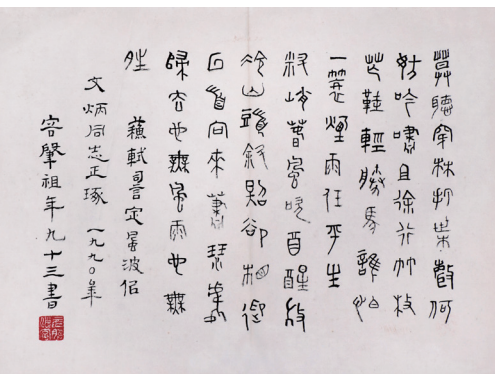 莫聽穿林打葉聲何
妨吟嘯且徐行竹杖
芒鞋輕勝馬誰怕
一蓑煙雨任平生
料峭春風吹酒醒微
冷山頭斜照卻相迎
回首向來蕭瑟處
歸去也無風雨也無
晴 蘇軾詞定風波
文炳同志正琢 一九九〇年
容肇祖年九十三書